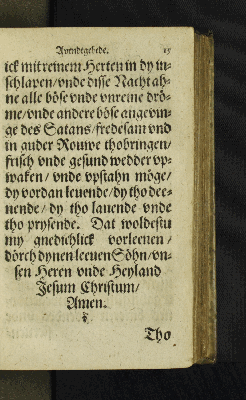 Auendtgebede. 15
ick mit reinem Herten in dy in-
schlapen/ vnde disse Nacht ah-
ne alle böse vnde vnreine drö-
me/ vnde andere böse angevin-
ge des Satans/ fredesam vnd
in guder Rouwe thobringen/
frisch vnde gesund wedder vp-
waken/ vnde vpstahn möge/
dy vordan leuende/ dy tho dee-
nende/ dy tho lauende vnde
tho prysende. Dat woldestu
my gnedichlick vorleenen/
dörch dynen leeuen Söhn/ vn-
sen Heren vnde Heyland
Jesum Christum/
Amen.
Tho